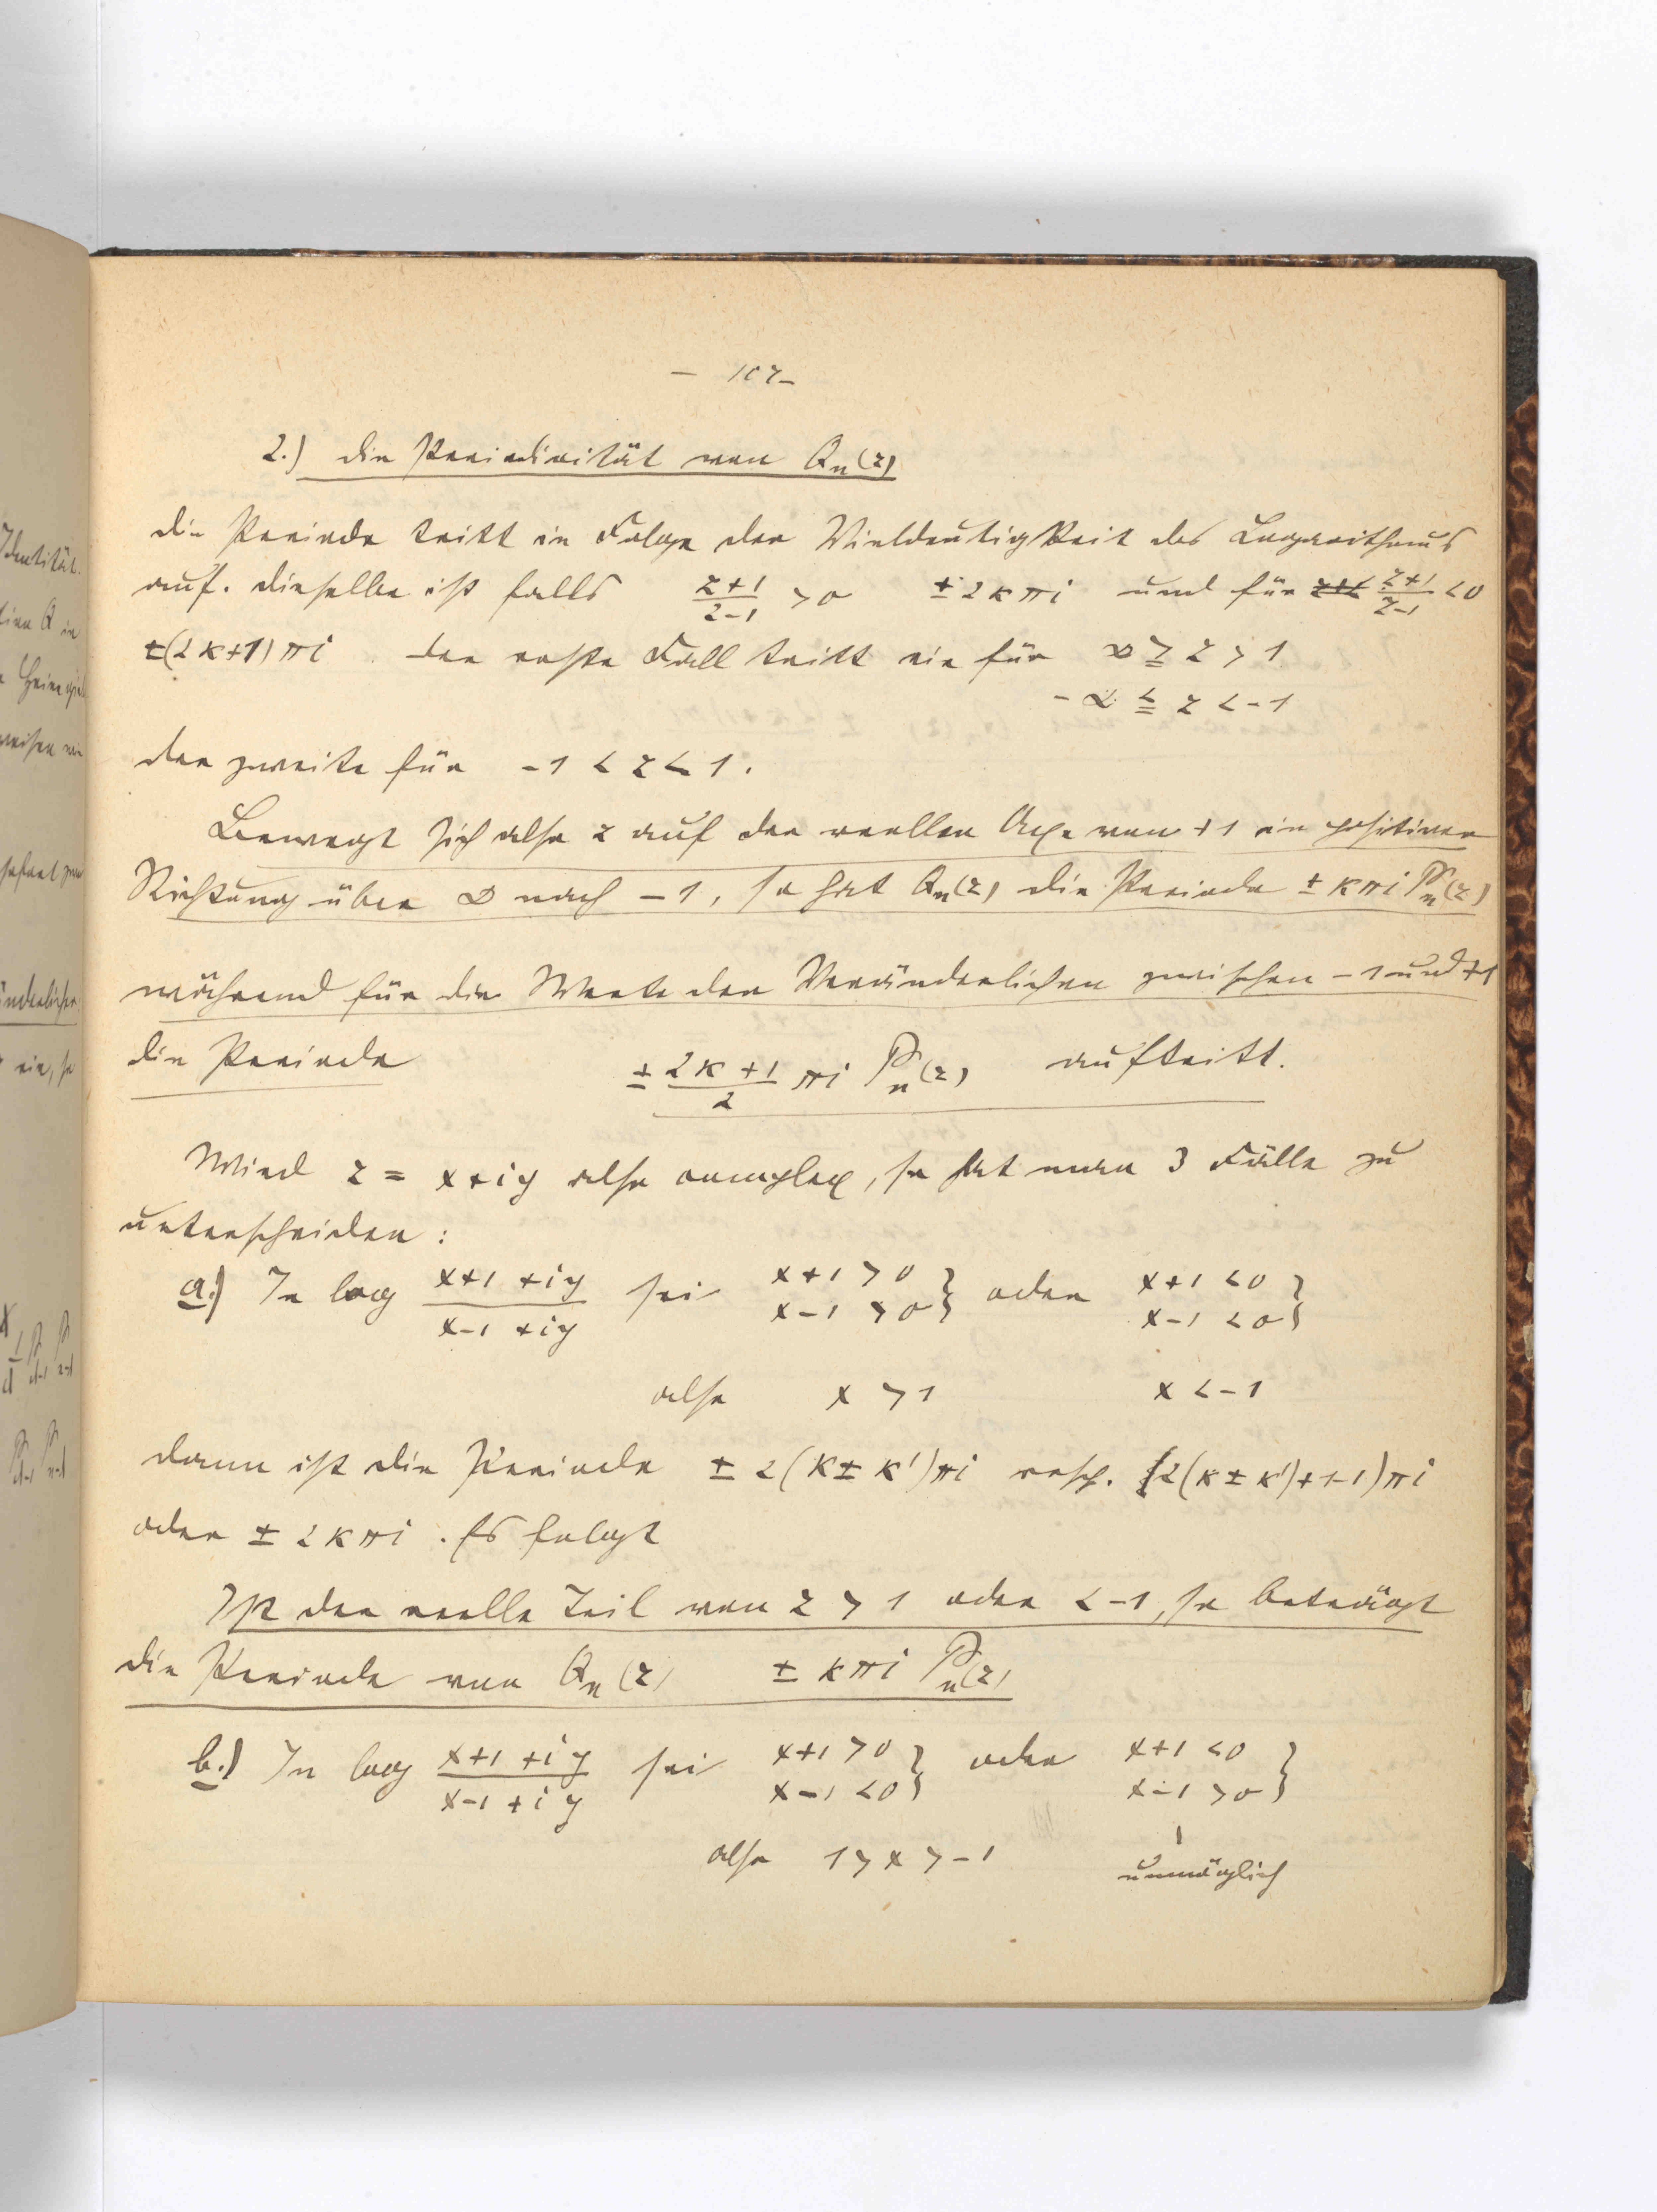 – 107 –
2.) die Periodicität von Qn(z)
die Periode tritt in Folge der Vieldeutigkeit des Logarithmus
auf. dieselbe ist falls (z+1)/(z-1) > 0 ± 2kπi und für (z+1)/(z-1) < 0
±(2k+1)πi. der erste Fall tritt ein für ∞ ≧ z > 1
-∞ ≦ z < -1
der zweite für -1 < z < 1.
Bewegt sich also z auf der reellen Axe von +1 in positiver
Richtung über ∞ nach -1, so hat Qn(z) die Periode ± kπi Pn(z)
während für die Werte der Veränderlichen zwischen -1 und +1
die Periode ± (2k+1)/2 πi Pn(z) auftritt.
Wird z = x+iy also complex, so hat man 3 Fälle zu
unterscheiden:
a.) In log (x+1+iy)/(x-1+iy) sei x+1 > 0 x-1 > 0 } oder x+1 < 0 x-1 < 0 }
also x > 1 x < -1
dann ist die Periode ± 2(k ± k')πi resp. (2(k ± k')+1-1)πi
oder ± 2kπi. Es folgt
Ist der reelle Teil von z > 1 oder < -1, so beträgt
die Periode von Qn(z) ± kπi Pn(z)
b.) In log (x+1+iy)/(x-1+iy) sei x+1 > 0 x-1 < 0 } oder x+1 < 0 x-1 > 0 }
also 1 > x > -1
unmöglich